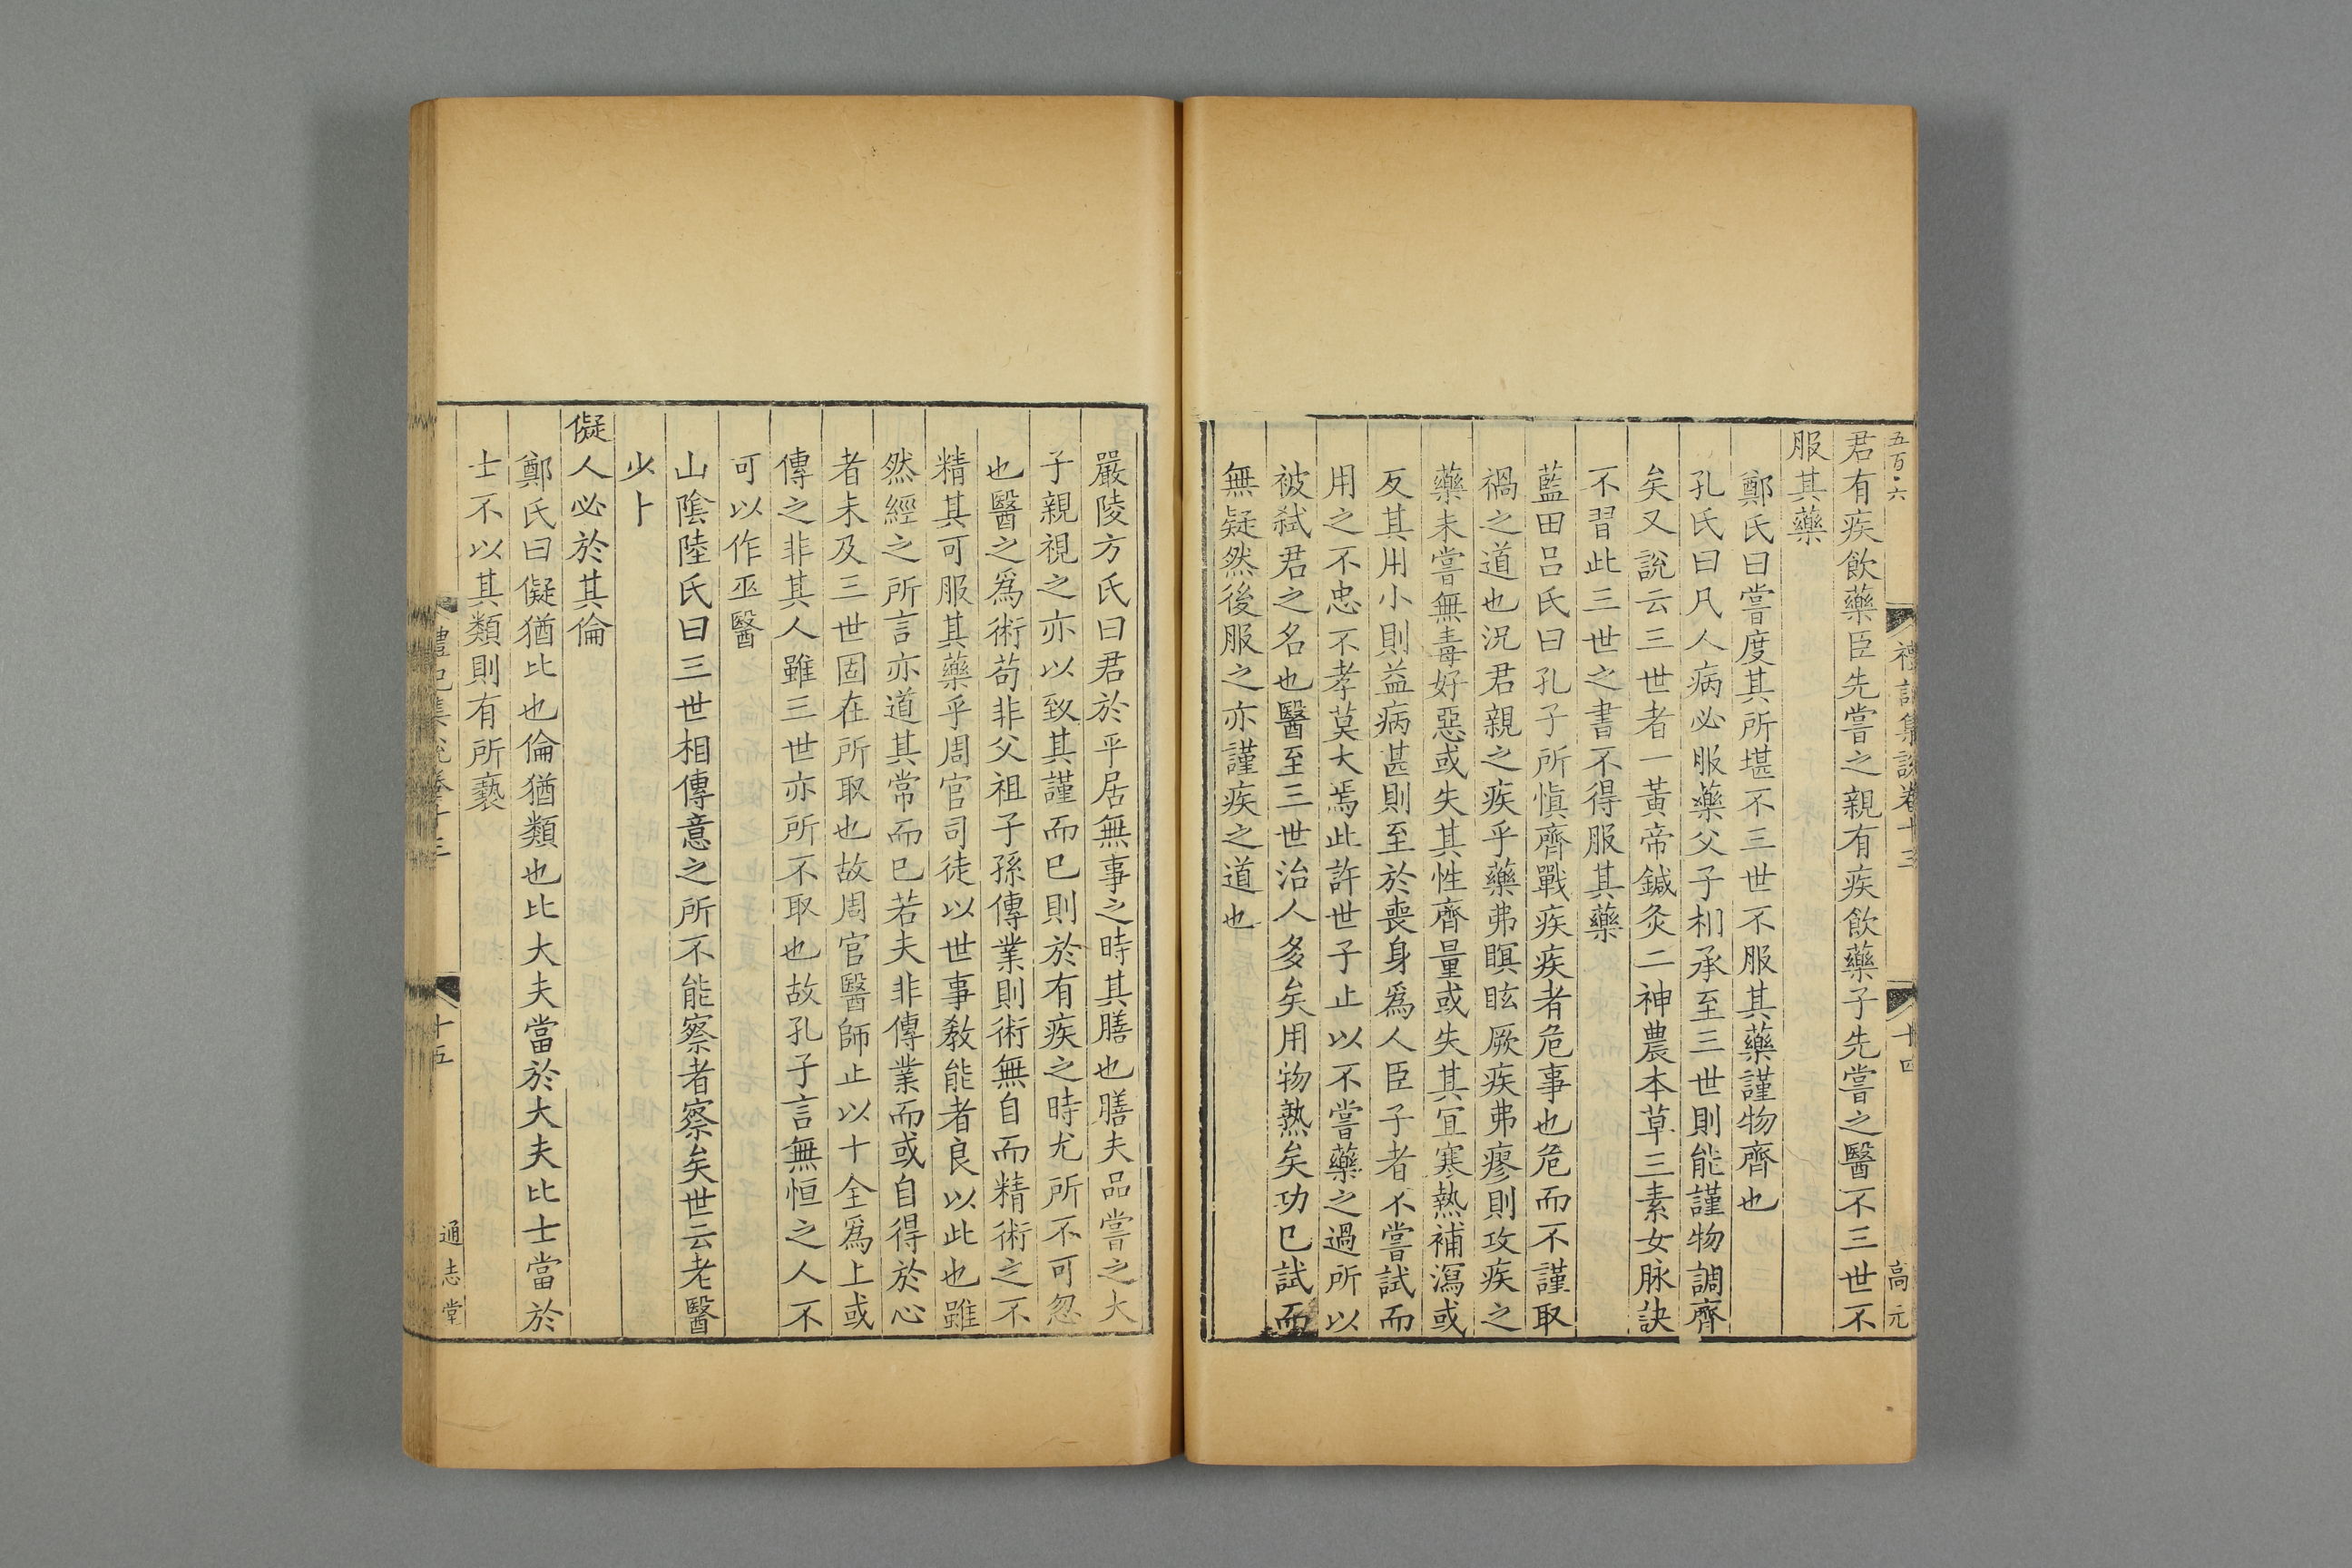 五百六
禮記集說卷十三
十四
高元
君有疾飲藥臣先嘗之親有疾飲藥子先嘗之醫不三世不
服其藥
鄭氏曰嘗度其所堪不三世不服其藥謹物齊也
孔氏曰凡人病必服藥父子相承至三世則能謹物調齊
矣又說云三世者一黃帝鍼灸二神農本草三素女脉訣
不習此三世之書不得服其藥
藍田呂氏曰孔子所慎齊戰疾疾者危事也危而不謹取
禍之道也況君親之疾乎藥弗瞑眩厥疾弗瘳則攻疾之
藥未嘗無毒好惡或失其性齊量或失其宜寒熱補瀉或
反其用小則益病甚則至於喪身爲人臣子者不嘗試而
用之不忠不孝莫大焉此許世子止以不嘗藥之過所以
被弒君之名也醫至三世治人多矣用物熱矣功已試而
無疑然後服之亦謹疾之道也
嚴陵方氏曰君於平居無事之時其膳也膳夫品嘗之大
子親視之亦以致其謹而已則於有疾之時尤所不可忽
也醫之爲術苟非父祖子孫傳業則術無自而精術之不
精其可服其藥乎周官司徒以世事敎能者良以此也雖
然經之所言亦道其常而已若夫非傳業而或自得於心
者未及三世固在所取也故周官醫師止以十全爲上或
傳之非其人雖三世亦所不取也故孔子言無恒之人不
可以作巫醫
山陰陸氏曰三世相傳意之所不能察者察矣世云老醫
少卜
儗人必於其倫
鄭氏曰儗猶比也倫猶類也比大夫當於大夫比士當於
士不以其類則有所褻
禮記集說卷十三
十五
通志堂